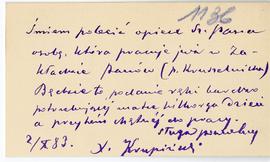 1136
Śmiem polecić opiece Sz. Pana
osobę, która pracuje już w Za-
kładzie Panów (p. Kruszelnicka)
Będzie to, podanie ręki bardzo
potrzebującej matce kilkorga dzieci
a przytem chętnej do pracy.
2/X 83. sługa powolny
X. Krupiński